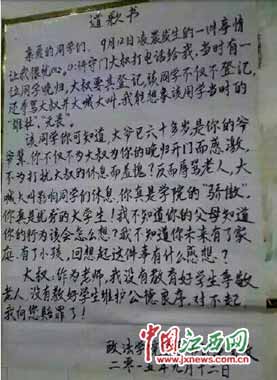 道歉书
亲爱的同学们，9月12日凌晨发生的一件事情
让我很忧心。0:15许守门大叔打电话给我，当时有一
位同学晚归，大叔要其登记，该同学不仅不登记，
还辱骂大叔并大喊大叫，我能想象该同学当时的
“雄壮”、“光荣”。
该同学你可知道，大爷已六十多岁，是你的爷
爷辈，你不仅不为大叔为你的晚归开门而感激，
不为打扰大叔的休息而羞愧？反而辱骂老人，大
喊大叫影响同学们休息，你真是学院的“骄傲”，
你真是优秀的大学生！我不知道你的父母知道
你的行为该会怎么想？我不知道你未来有了家
庭，有了小孩，回想起这件事有什么感想？
大叔：作为老师，我没有教育好学生孝敬
老人，没有教好学生维护公德良序，对不起，
我向您赔罪了！
政法学
人
二零一五年九月十二日
中国江西网